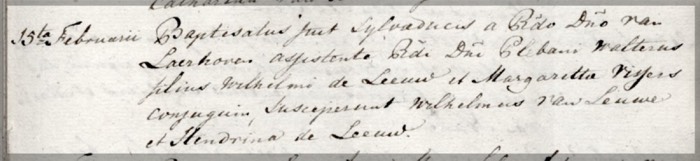 15ta Februarii Baptisatus fuit Sylvaducis a Rdo Dno van
Laerhoven assistente Rdi Dni Plebani Walterus
filius Wilhelmi de Leeuw et Margaretta Vissers
conjugum, susceperunt Wilhelmus van Leuwe
et Hendrina de Leeuw.